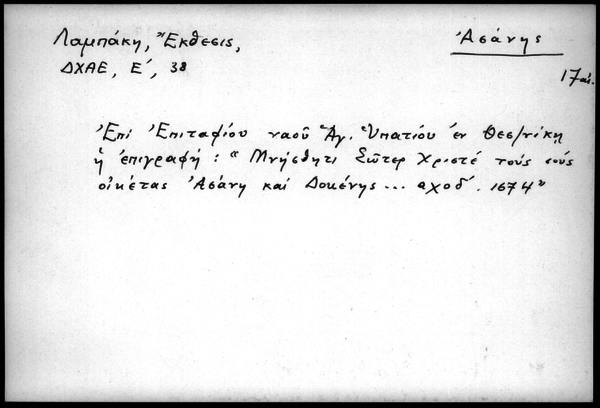 Λαμπάκη, Ἔκθεσις,
ΔΧΑΕ, Ε΄, 38
Ἀσάνης
17 αἰ.
Ἐπί Ἐπιταφίου ναοῦ Ἁγ. Ὑπατίου ἐν Θεσ/νίκῃ
ἡ ἐπιγραφή: "Μνήσθητι Σῶτερ Χριστέ τούς σούς
οἰκέτας Ἀσάνη καί Δοκένης... αχοδ΄. 1674"